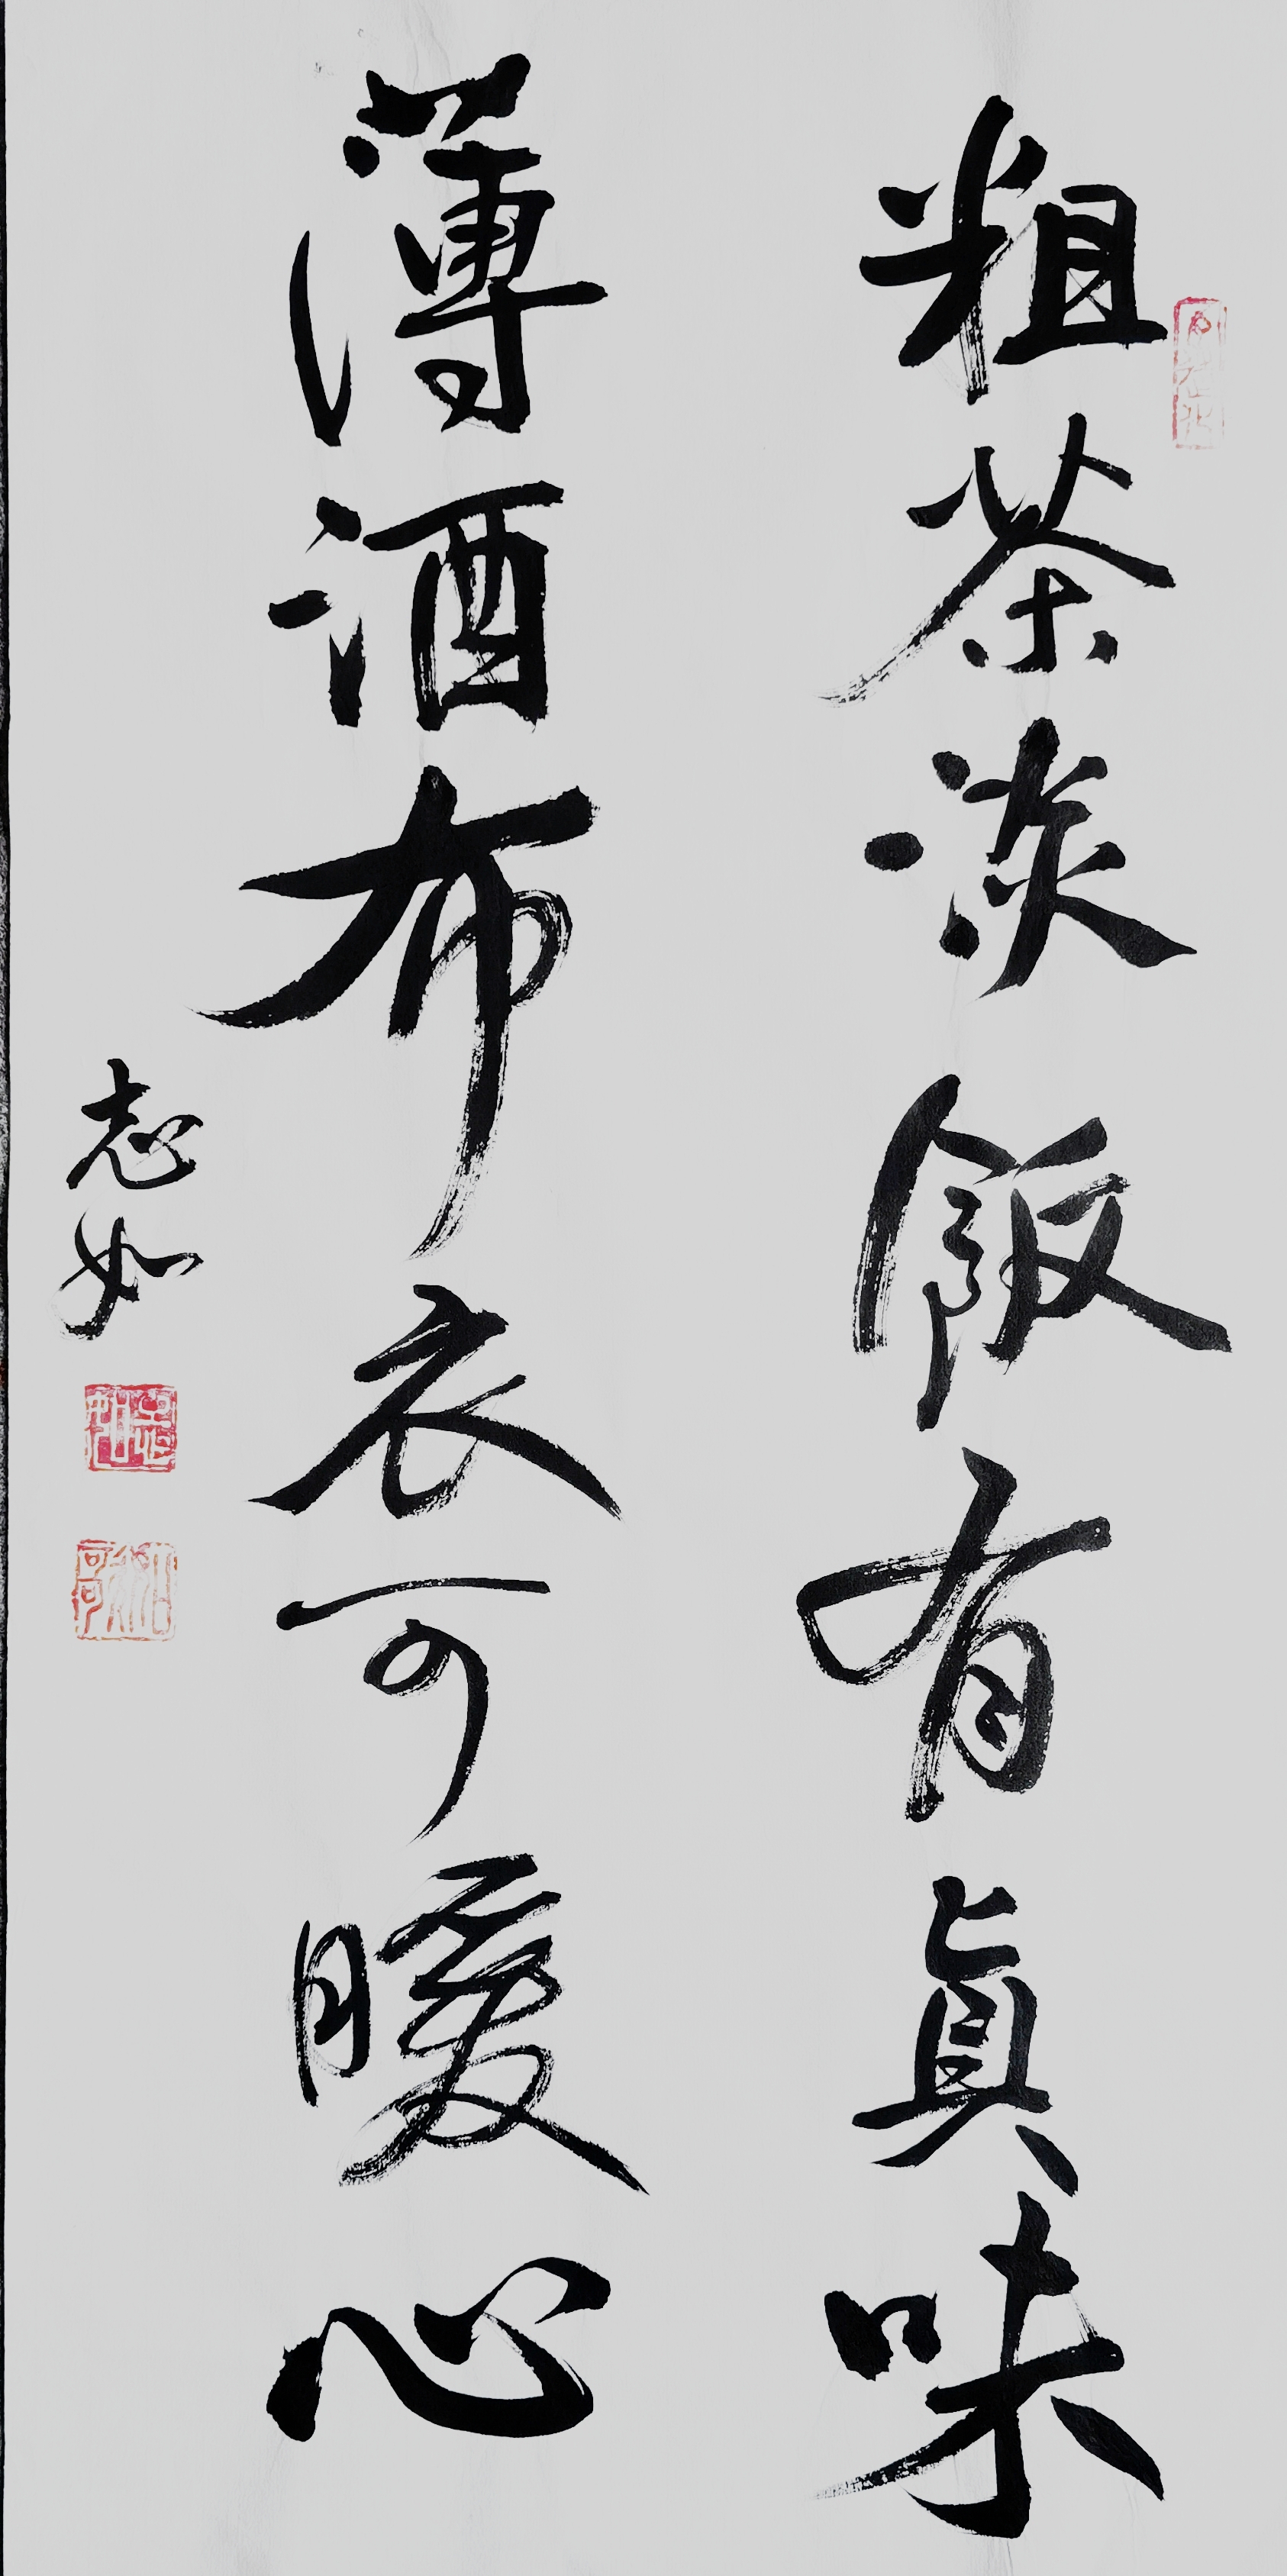 粗茶淡飯有真味
薄酒布衣可暖心
志如